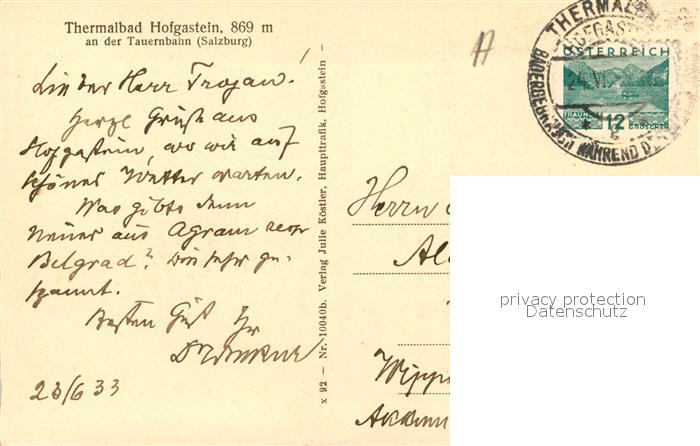 Thermalbad Hofgastein, 869 m
an der Tauernbahn (Salzburg)
Lieber Herr Trojan!
Herzl Grüße aus
Hofgastein, wo wir auf
schönes Wetter warten.
Was gibts denn
neues aus Agram resp
Belgrad? Bin sehr ge-
spannt.
Besten Gruß Ihr
23/6 33
x 92 – Nr. 10040b. Verlag Julie Köstler, Haupttrafik, Hofgastein –
A
THERMAL
HOFGAST
24.VI.
BADEGEBRAUCH WÄHREND D
ÖSTERREICH
TRAUN
12 GROSCHEN
Herrn
Wipp
privacy protection
Datenschutz